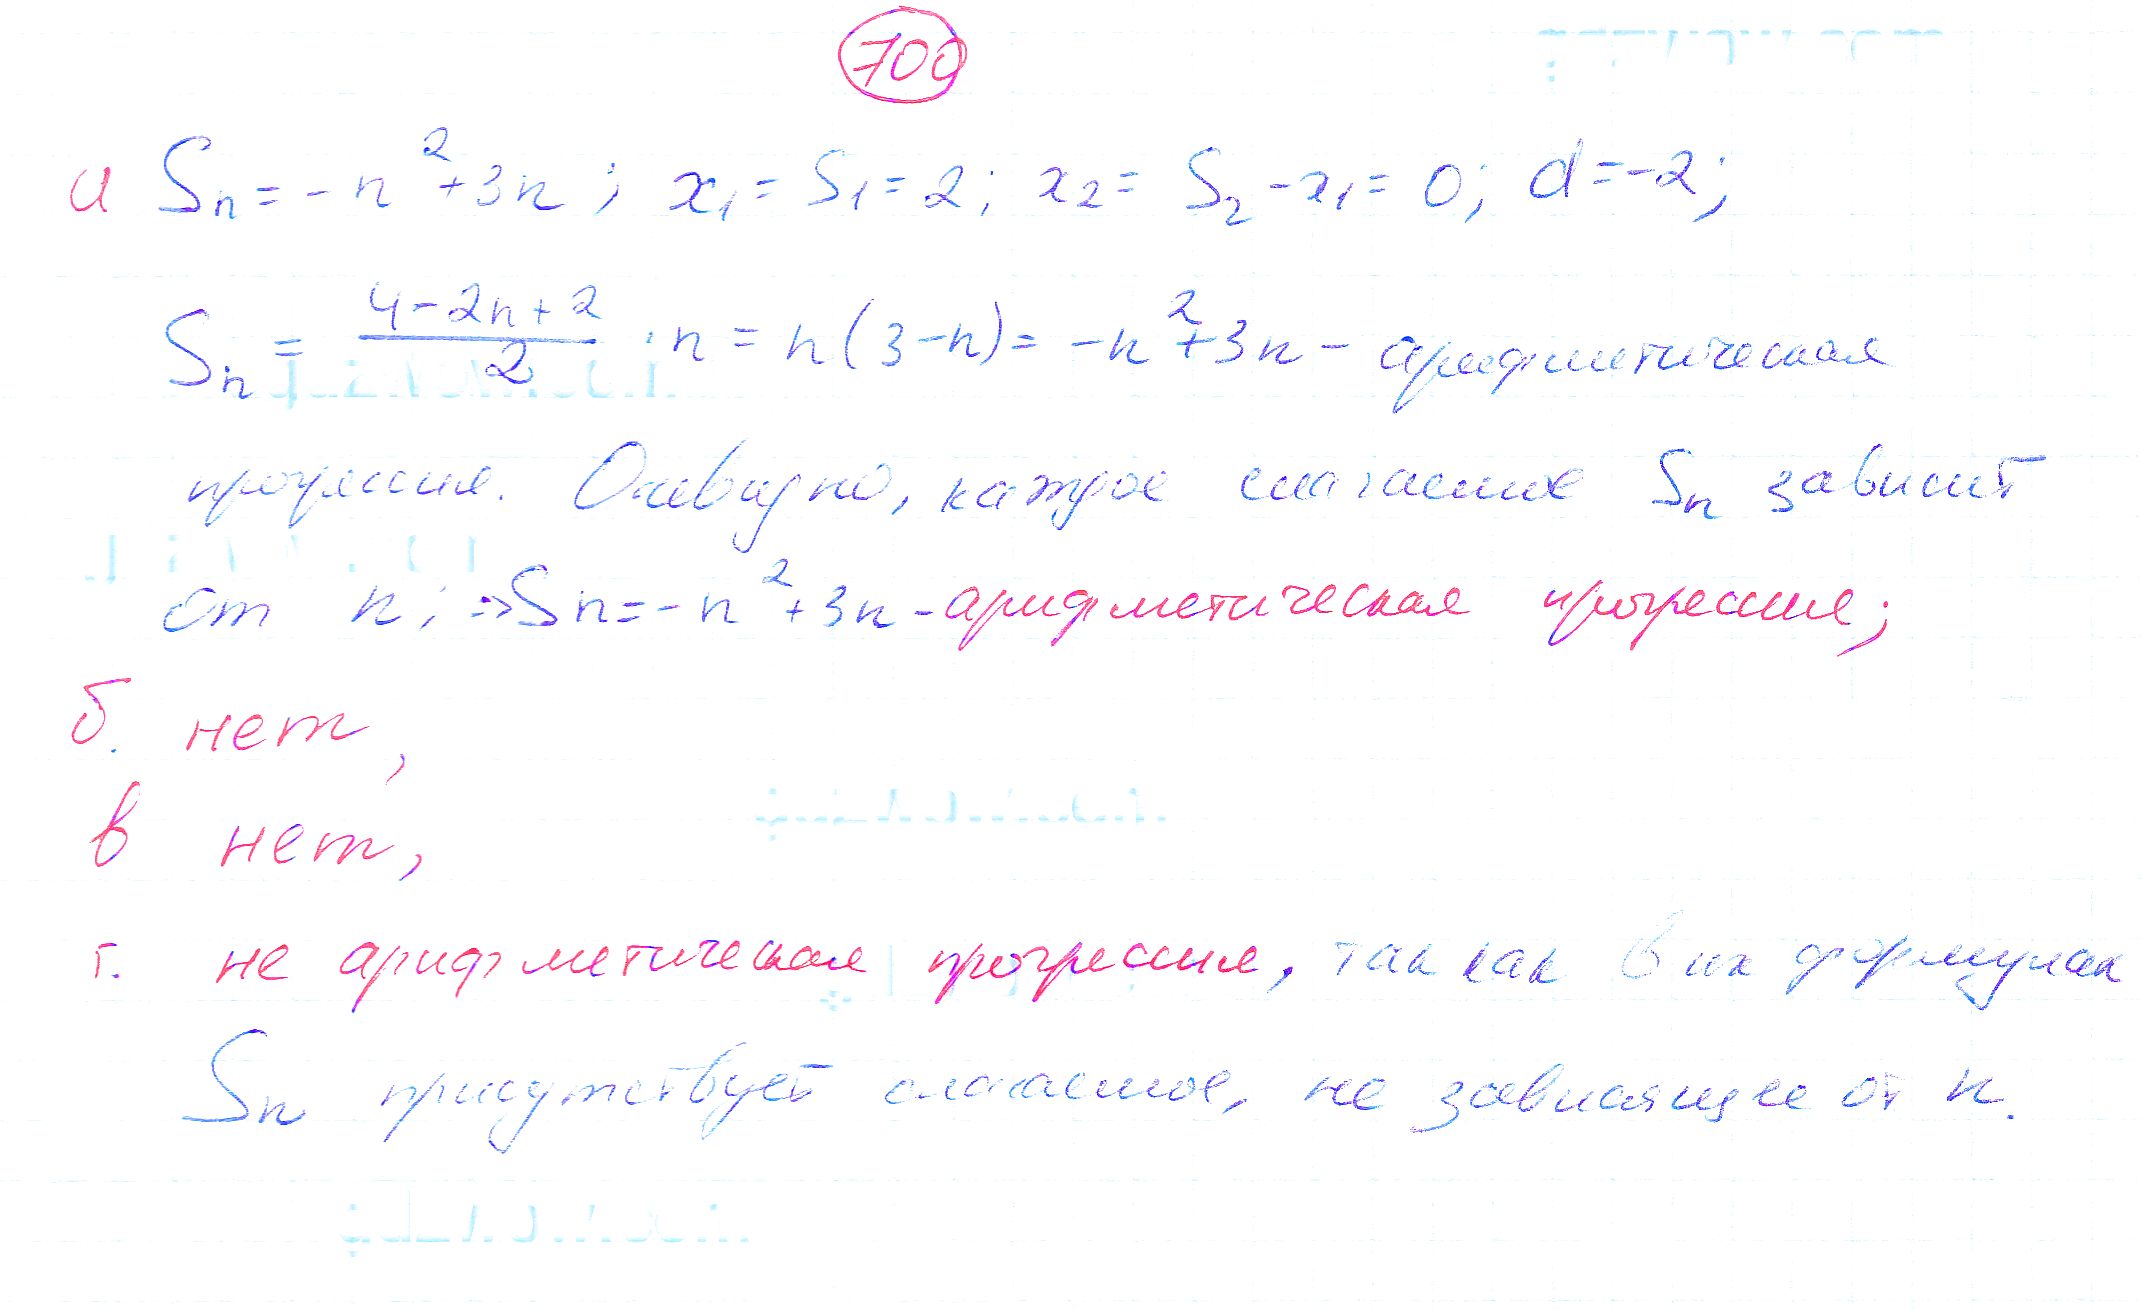 700
а Sn = -n²+3n; x₁ = S₁ = 2; x₂ = S₂ - x₁ = 0; d = -2;
Sn = (4-2n+2)/2 · n = n(3-n) = -n²+3n - арифметическая
прогрессия. Очевидно, каждое слагаемое Sn зависит
от n; ⇒ Sn = -n²+3n - арифметическая прогрессия;
б. нет,
в нет,
г. не арифметическая прогрессия, так как в их формулах
Sn присутствует слагаемое, не зависящее от n.